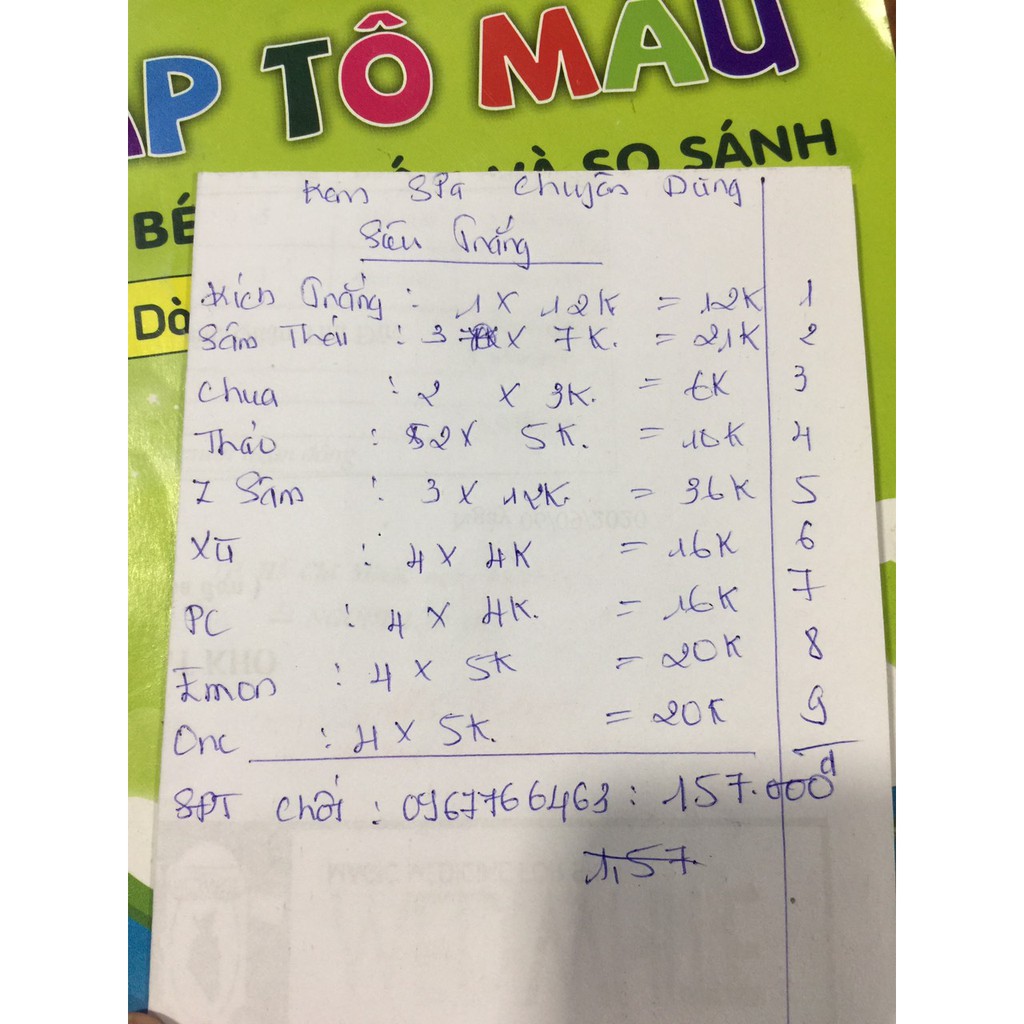 ẬP TÔ MÀU
BÉ VÀ SO SÁNH
Dà
Kem SPa Chuyên Dùng
Siêu Trắng
Kích Trắng : 1 X 12K = 12K 1
Sâm Thái : 3 X 7K. = 21K 2
Chua : 2 X 3K. = 6K 3
Thảo : 2 X 5K. = 10K 4
7 Sâm : 3 X 12K. = 36K 5
: 4 X 4K = 16K 6
PC : 4 X 4K. = 16K 7
: 4 X 5K = 20K 8
Onc : 4 X 5K. = 20K 9
SPT : 0967766463 : 157.000đ
1,57.